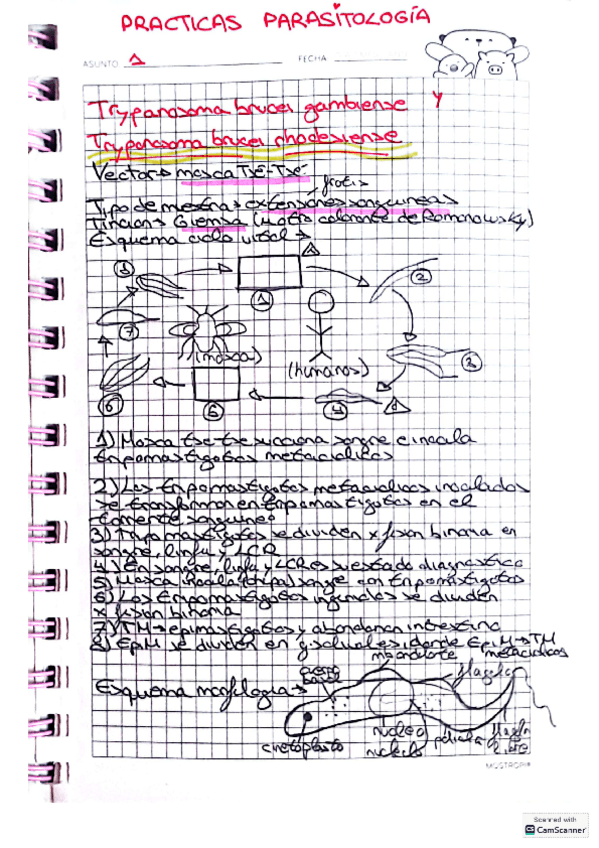 PRACTICAS PARASITOLOGÍA
ASUNTO 1 FECHA
Trypanosoma brucei gambiense y
Trypanosoma brucei rhodesiense
Vector → mosca Tsé-Tsé
frotis
Tipo de muestras extensiones sanguineas
Tinción → Giemsa (u otro colorante de Romanowsky)
Esquema ciclo vital →
8
1
2
7
(mosca)
(humanos)
3
6
5
4
1) Mosca tse-tse succiona sangre e inocula
tripomastigotes metaciclicos
2) Los tripomastigotes metaciclicos inoculados
se transforman en tripomastigotes en el
torrente sanguineo
3) Tripomastigotes se dividen x fision binaria en
sangre, linfa y LCR
4) En sangre, linfa y LCR es estado diagnostico
5) Mosca sangre con tripomastigotes
6) Los tripomastigotes ingeridos se dividen
x fision binaria
7) TM → epimastigotes y abandonan intestino
8) EpiM se dividen en g. salivales, donde EpiM → TM
metaciclicos
Esquema morfologia →
cuerpo basal
m. ondulante
flagelo
cinetoplasto
núcleo
nucleolo
pelicula
flagelo libre
MOSTROPI®
Scanned with
CamScanner